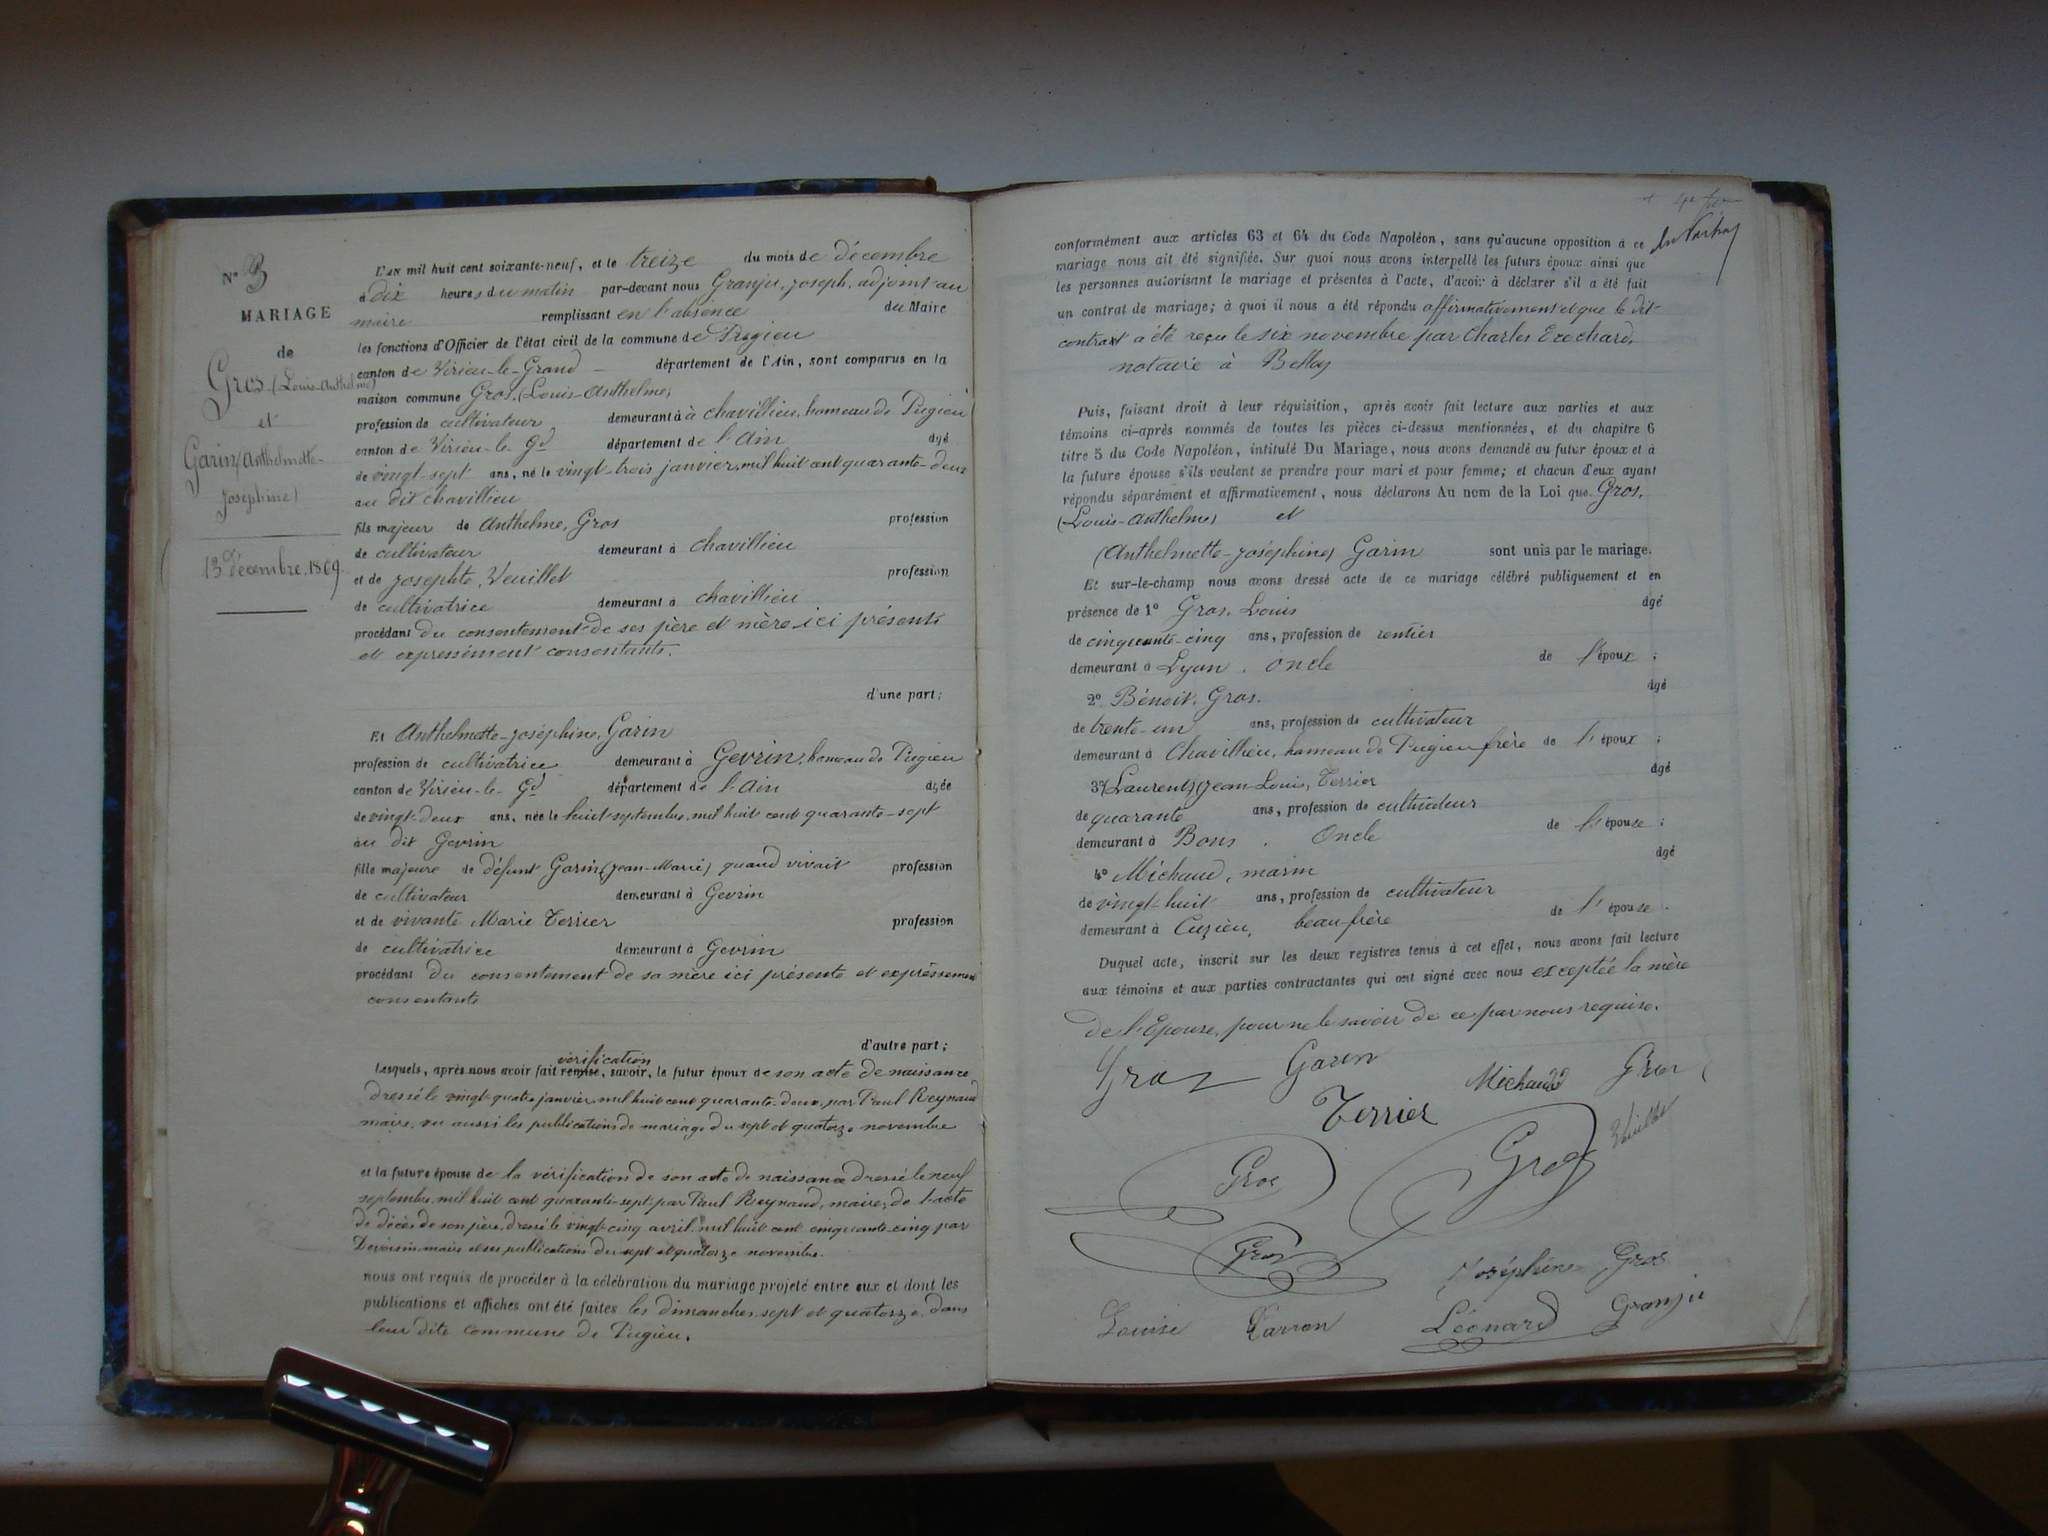 N° 3
MARIAGE
de
Gros (Louis-Anthelme)
et
Garin (Anthelmette-
Joséphine)
13 décembre 1869
L'an mil huit cent soixante-neuf, et le treize du mois de décembre
à dix heures du matin par-devant nous Granju, joseph, adjoint au
maire remplissant en l'absence du Maire
les fonctions d'Officier de l'état civil de la commune de Pugieu
canton de Virieu-le-Grand département de l'Ain, sont comparus en la
maison commune Gros, (Louis-Anthelme)
profession de cultivateur demeurant à à chavillieu, hameau de Pugieu
canton de Virieu-le-Gd département de l'Ain âgé
de vingt-sept ans, né le vingt-trois janvier, mil huit cent quarante-deux
au dit chavillieu
fils majeur de Anthelme, Gros profession
de cultivateur demeurant à chavillieu
et de josephte, Veuillet profession
de cultivatrice demeurant à chavillieu
procédant du consentement de ses père et mère ici présents
et expressément consentants.
d'une part;
Et Anthelmette-joséphine, Garin
profession de cultivatrice demeurant à Gevrin, hameau de Pugieu
canton de Virieu-le-Gd département de l'Ain âgée
de vingt-deux ans, née le huit septembre, mil huit cent quarante-sept
au dit Gevrin
fille majeure de défunt Garin (jean-Marie) quand vivait profession
de cultivateur demeurant à Gevrin
et de vivante Marie Terrier profession
de cultivatrice demeurant à Gevrin
procédant du consentement de sa mère ici présente et expréssemen
consentante
d'autre part;
vérification
Lesquels, après nous avoir fait remise, savoir, le futur époux de son acte de naissance
dressé le vingt-quatre janvier, mil huit cent quarante-deux, par Paul Reynaud
maire, vu aussi les publications de mariage du sept et quatorze novembre
et la future épouse de la vérification de son acte de naissance dressé le neuf
septembre, mil huit cent quarante-sept par Paul Reynaud, maire, de l'acte
de décès de son père, dressé le vingt-cinq avril mil huit cent cinquante-cinq par
maire et ses publications du sept et quatorze novembre.
nous ont requis de procéder à la célébration du mariage projeté entre eux et dont les
publications et affiches ont été faites les dimanches sept et quatorze dans
leur dite commune de Pugieu.
conformément aux articles 63 et 64 du Code Napoléon, sans qu'aucune opposition à ce
mariage nous ait été signifiée. Sur quoi nous avons interpellé les futurs époux ainsi que
les personnes autorisant le mariage et présentes à l'acte, d'avoir à déclarer s'il a été fait
un contrat de mariage; à quoi il nous a été répondu affirmativement et que le dit
contrat a été reçu le six novembre par Charles
notaire à Belley
Puis, faisant droit à leur réquisition, après avoir fait lecture aux parties et aux
témoins ci-après nommés de toutes les pièces ci-dessus mentionnées, et du chapitre 6
titre 5 du Code Napoléon, intitulé Du Mariage, nous avons demandé au futur époux et à
la future épouse s'ils veulent se prendre pour mari et pour femme; et chacun d'eux ayant
répondu séparément et affirmativement, nous déclarons Au nom de la Loi que Gros,
(Louis-Anthelme) et
(Anthelmette-joséphine) Garin sont unis par le mariage.
Et sur-le-champ nous avons dressé acte de ce mariage célébré publiquement et en
présence de 1° Gros, Louis âgé
de cinquante-cinq ans, profession de rentier
demeurant à Lyon. oncle de l'époux;
2° Bénoit, Gros. âgé
de trente-un ans, profession de cultivateur
demeurant à Chavillieu, hameau de Pugieu frère de l'époux;
3° (Laurent) jean-Louis, Terrier âgé
de quarante ans, profession de cultivateur
demeurant à Bons. Oncle de l'épouse;
4° Michaud, marin âgé
de vingt-huit ans, profession de cultivateur
demeurant à Cuzieu, beau frère de l'épouse.
Duquel acte, inscrit sur les deux registres tenus à cet effet, nous avons fait lecture
aux témoins et aux parties contractantes qui ont signé avec nous exceptée la mère
de l'Epouse, pour ne le savoir de ce par nous requise.
Gros Garin Michaud Gros
Terrier
Gros Gros
Gros
Joséphine Gros
Louise Carron Léonard Granju